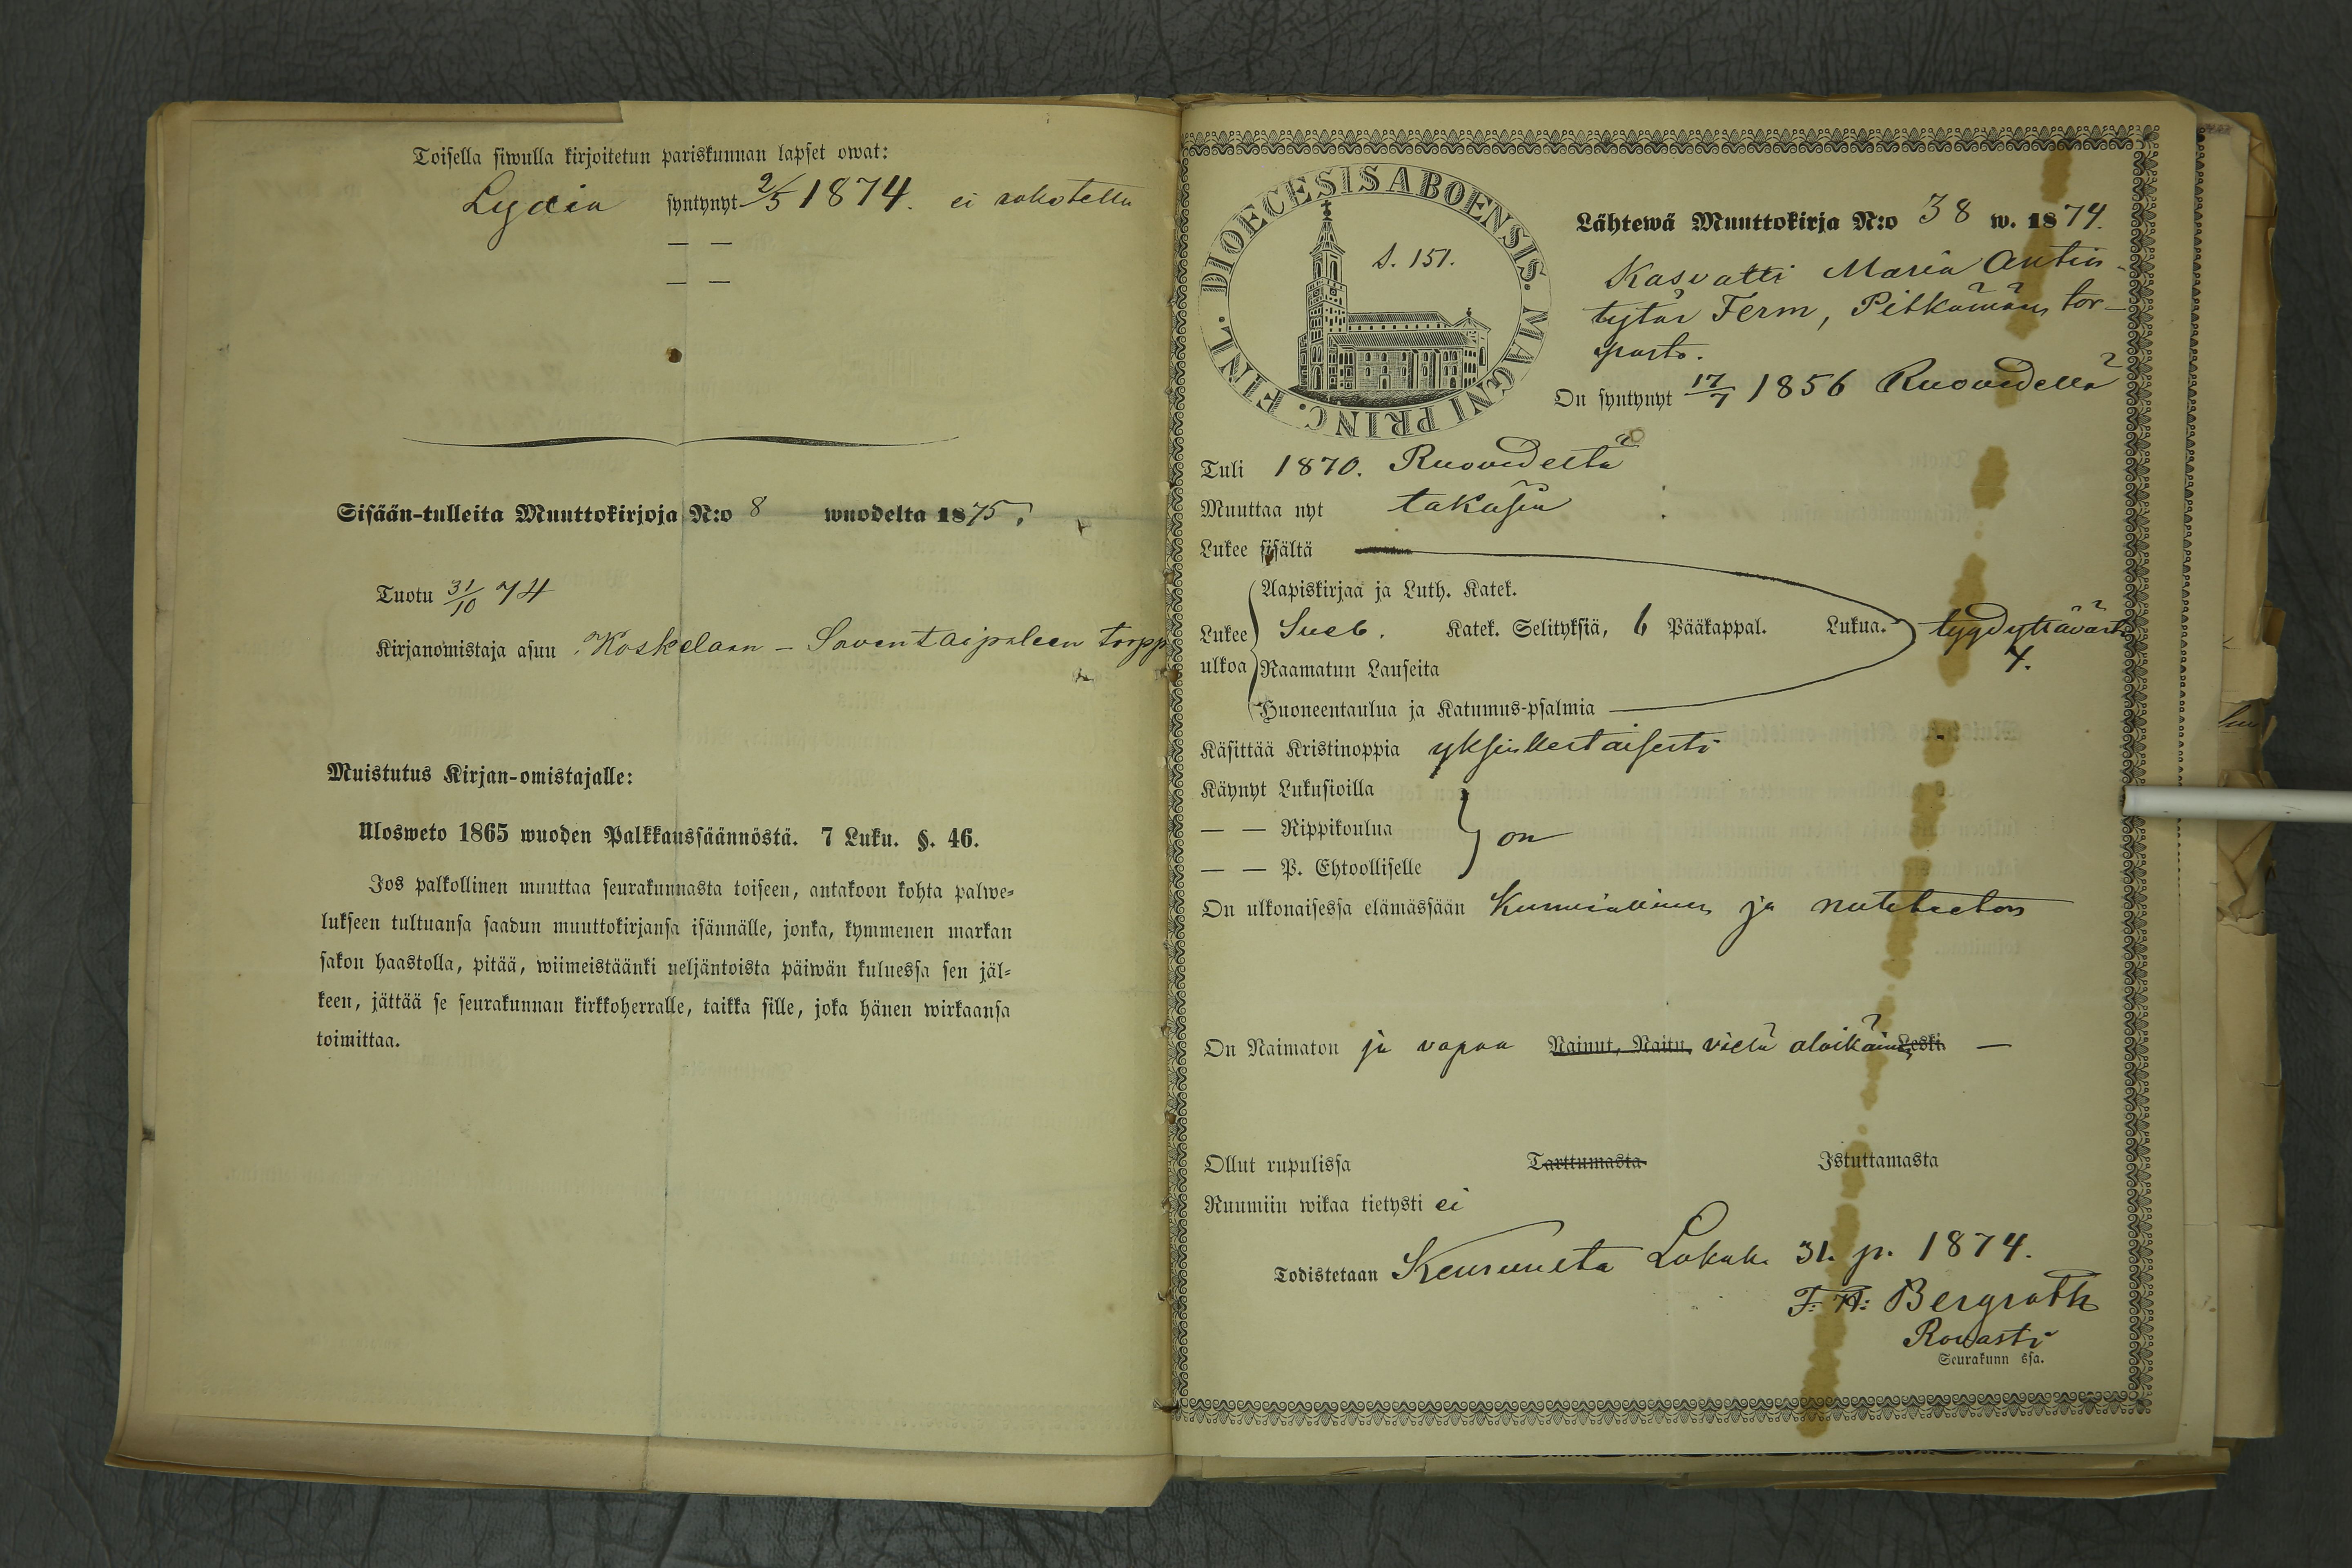 Toisella siwulla kirjoitetun pariskunnan lapset owat:
Lydia syntynyt 2/5 1874. ei rokotettu
— —
— —
Sisään-tulleita Muuttokirjoja N:o 8 wuodelta 1875.
Tuotu 31/10 74
Kirjanomistaja asuu Koskelaan – Saventaipaleen torpp
Muistutus Kirjan-omistajalle:
Ulosweto 1865 wuoden Palkkaussäännöstä. 7 Luku. §. 46.
Jos palkollinen muuttaa seurakunnasta toiseen, antakoon kohta palwe-
lukseen tultuansa saadun muuttokirjansa isännälle, jonka, kymmenen markan
sakon haastolla, pitää, wiimeistäänki neljäntoista päiwän kuluessa sen jäl-
keen, jättää se seurakunnan kirkkoherralle, taikka sille, joka hänen wirkaansa
toimittaa.
DIOECESIS ABOENSIS. MAGNI PRINC. FINL.
S. 151.
Lähtewä Muuttokirja N:o 38 w. 1874.
Kasvatti Maria Antin
tytär Ferm, Pitkämäen tor-
pasta.
On syntynyt 17/7 1856 Ruovedellä
Tuli 1870. Ruovedeltä
Muuttaa nyt takasin
Lukee sisältä
Aapiskirjaa ja Luth. Katek.
Lukee Sueb. Katek. Selityksiä, 6 Pääkappal. Lukua. tyydyttäväst
4.
ulkoa Raamatun Lauseita
Huoneentaulua ja Katumus-psalmia
Käsittää Kristinoppia yksinkertaisesti
Käynyt Lukusioilla
— — Rippikoulua on
— — P. Ehtoolliselle
On ulkonaisessa elämässään kunniallinen ja nuhteeton
On Naimaton ja vapaa Nainut, Naitu, vielä alaikäinen Leski —
Ollut rupulissa Tarttumasta Istuttamasta
Ruumiin wikaa tietysti ei
Todistetaan Keuruulta Lokak. 31. p. 1874.
F. H: Bergroth
Rovasti
Seurakunn ssa.